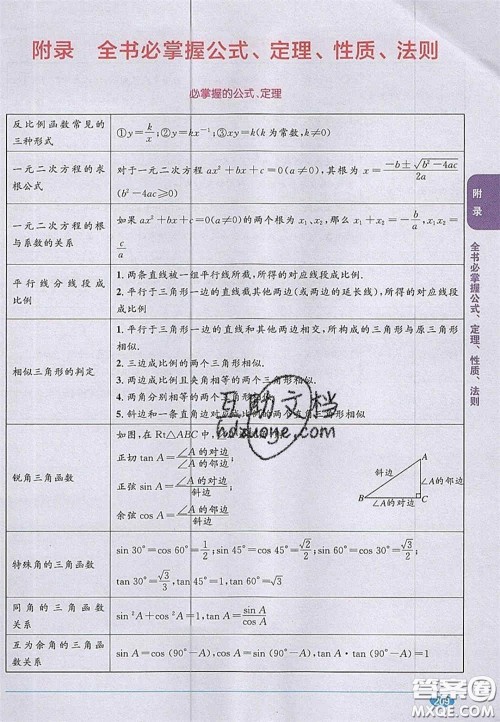 附录　全书必掌握公式、定理、性质、法则
必掌握的公式、定理
反比例函数常见的三种形式
①y=k/x；②y=kx⁻¹；③xy=k(k为常数，k≠0)
一元二次方程的求根公式
对于一元二次方程ax²+bx+c=0(a≠0)，其根为x=(-b±√(b²-4ac))/2a
(b²-4ac≥0)
一元二次方程的根与系数的关系
如果ax²+bx+c=0(a≠0)的两个根为x₁、x₂，那么x₁+x₂=-b/a，x₁x₂=
c/a
平行线分线段成比例
1. 两条直线被一组平行线所截，所得的对应线段成比例.
2. 平行于三角形一边的直线截其他两边(或两边的延长线)，所得的对应线段成比例.
相似三角形的判定
1. 平行于三角形一边的直线和其他两边相交，所构成的三角形与原三角形相似.
2. 三边成比例的两个三角形相似.
3. 两边成比例且夹角相等的两个三角形相似.
4. 两角分别相等的两个三角形相似.
5. 斜边和一条直角边对应成比例的两个直角三角形相似.
锐角三角函数
如图，在Rt△ABC中，
正切tan A=∠A的对边/∠A的邻边
正弦sin A=∠A的对边/斜边
余弦cos A=∠A的邻边/斜边
A
斜边
∠A的邻边
B
C
∠A的对边
特殊角的三角函数
sin 30°=cos 60°=1/2；sin 45°=cos 45°=√2/2；sin 60°=cos 30°=√3/2；
tan 30°=√3/3，tan 45°=1；tan 60°=√3
同角的三角函数关系
sin²A+cos²A=1，tan A=sin A/cos A
互为余角的三角函数关系
sin A=cos (90°-A)，cos A=sin (90°-A)，tan A·tan (90°-A)=1
附录
全书必掌握公式、定理、性质、法则
互助文档
hdzuoye.com
205
答案圈
MXQE.COM